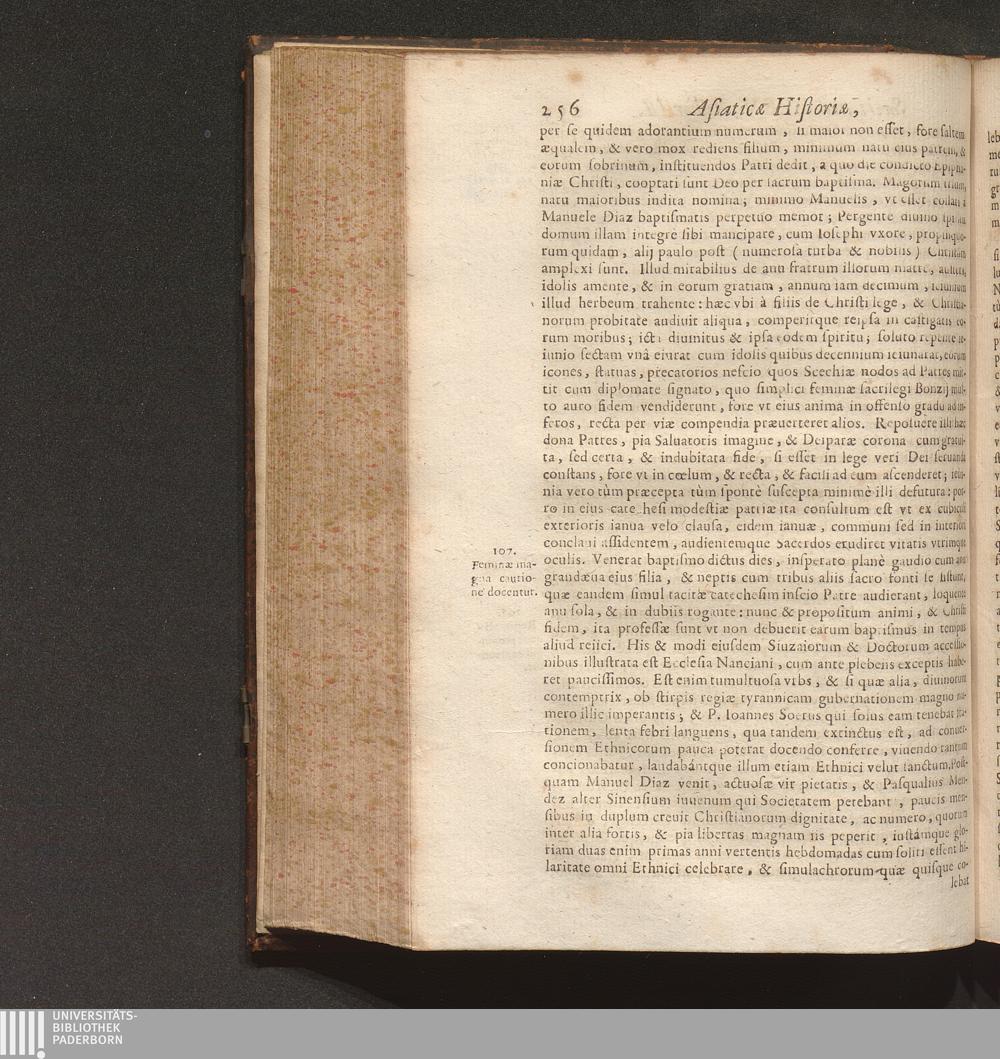 256 Aſiaticæ Hiſtoriæ,
per ſe quidem adorantium numerum , ſi maior non eſſet , fore ſaltem
æqualem , & vero mox rediens filium , minimum natu eius patrem, &
eorum ſobrinum , inſtituendos Patri dedit , a quo die condicto Epipha-
niæ Chriſti , cooptati ſunt Deo per ſacrum baptiſma. Magorum trium,
natu maioribus indita nomina ; minimo Manuelis , vt eſſet collati à
Manuele Diaz baptiſmatis perpetuo memor ; Pergente diuino ſpiritu
domum illam integrè ſibi mancipare , cum Ioſephi vxore , propinquo-
rum quidam , alij paulo poſt ( numeroſa turba & nobilis ) Chriſtum
amplexi ſunt. Illud mirabilius de anu fratrum illorum matre,
idolis amente , & in eorum gratiam , annum iam decimum , ieiunium
illud herbeum trahente : hæc vbi à filiis de Chriſti lege , & Chriſtia-
norum probitate audiuit aliqua , comperitque reipſa in caſtigatis eo-
rum moribus ; icta diuinitus & ipſa eodem ſpiritu ; ſoluto repente ie-
iunio ſectam vnâ eiurat cum idolis quibus decennium ieiunarat, eorum
icones , ſtatuas , precatorios neſcio quos Scechiæ nodos ad Patres mit-
tit cum diplomate ſignato , quo ſimplici feminæ ſacrilegi Bonzij mul-
to auro fidem vendiderunt , fore vt eius anima in offenſo gradu ad in-
feros , recta per viæ compendia præuerteret alios. Repoſuere illi hæc
dona Patres , pia Saluatoris imagine , & Deiparæ corona cum gratui-
ta , ſed certa , & indubitata fide , ſi eſſet in lege veri Dei ſeruandâ
conſtans , fore vt in cœlum , & recta , & facili ad eum aſcenderet ; ieiu-
nia vero tùm præcepta tùm ſpontè ſuſcepta minimè illi defutura : por-
ro in eius catecheſi modeſtiæ patriæ ita conſultum eſt vt ex cubiculi
exterioris ianua velo clauſa , eidem ianuæ , communi ſed in interiori
conclaui aſſidentem , audientemque Sacerdos erudiret vitatis vtrimque
oculis. Venerat baptiſmo dictus dies , inſperato planè gaudio cum anu
grandæua eius filia , & neptis cum tribus aliis ſacro fonti ſe ſiſtunt,
quæ eandem ſimul tacitæ catecheſim inſcio Patre audierant , loquente
anu ſola , & in dubiis rogante : nunc & propoſitum animi , & Chriſti
fidem , ita profeſſæ ſunt vt non debuerit earum baptiſmus in tempus
aliud reiici. His & modi eiuſdem Siuzaiorum & Doctorum acceſſio-
nibus illuſtrata eſt Eccleſia Nanciani , cum ante plebeus exceptis habe-
ret pauciſſimos. Eſt enim tumultuoſa vrbs , & ſi quæ alia , diuinorum
contemptrix , ob ſtirpis regiæ tyrannicam gubernationem magno nu-
mero illic imperantis ; & P. Ioannes Soerus qui ſolus eam tenebat ſta-
tionem , lenta febri languens , qua tandem extinctus eſt , ad conuer-
ſionem Ethnicorum pauca poterat docendo conferre , viuendo tantum
concionabatur , laudabántque illum etiam Ethnici velut ſanctum. Poſt-
quam Manuel Diaz venit , actuoſæ vir pietatis , & Paſqualius Men-
dez alter Sinenſium iuuenum qui Societatem petebant , paucis men-
ſibus in duplum creuit Chriſtianorum dignitate , ac numero , quorum
inter alia fortis , & pia libertas magnam iis peperit , iuſtámque glo-
riam duas enim primas anni vertentis hebdomadas cum ſoliti eſſent hi-
laritate omni Ethnici celebrare , & ſimulachrorum quæ quiſque co-
lebat
107.
Feminæ ma-
gna cautio-
ne docentur.
UNIVERSITÄTS-
BIBLIOTHEK
PADERBORN